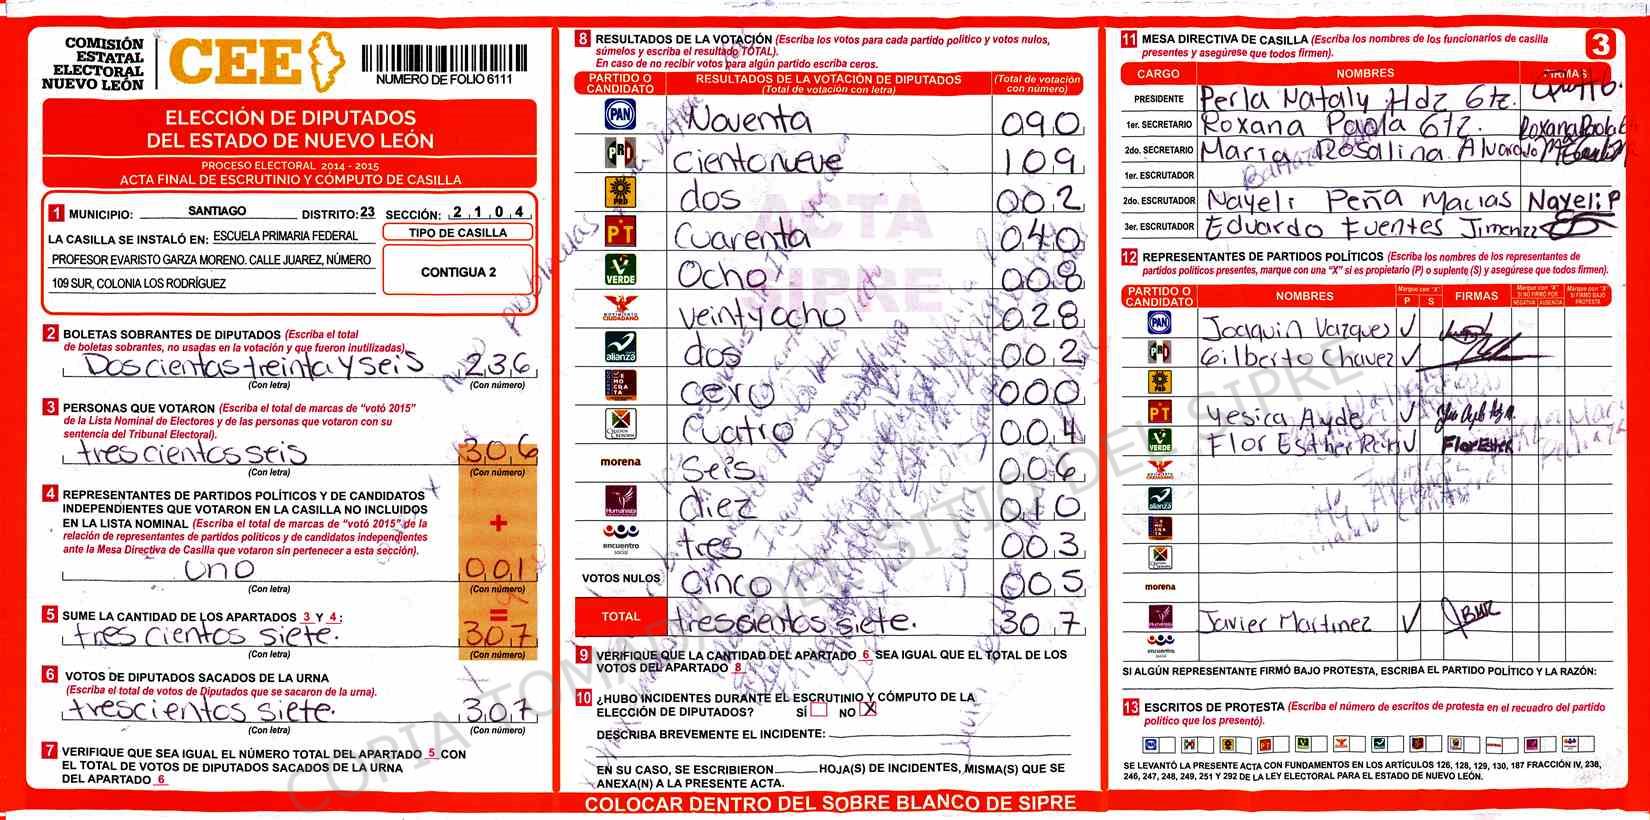 COMISIÓN
ESTATAL
ELECTORAL
NUEVO LEÓN
CEE
NUMERO DE FOLIO 6111
ELECCIÓN DE DIPUTADOS
DEL ESTADO DE NUEVO LEÓN
PROCESO ELECTORAL 2014 - 2015
ACTA FINAL DE ESCRUTINIO Y CÓMPUTO DE CASILLA
1 MUNICIPIO: SANTIAGO DISTRITO: 23 SECCIÓN: 2 1 0 4
LA CASILLA SE INSTALÓ EN: ESCUELA PRIMARIA FEDERAL
PROFESOR EVARISTO GARZA MORENO. CALLE JUAREZ, NÚMERO
109 SUR, COLONIA LOS RODRÍGUEZ
TIPO DE CASILLA
CONTIGUA 2
2 BOLETAS SOBRANTES DE DIPUTADOS (Escriba el total
de boletas sobrantes, no usadas en la votación y que fueron inutilizadas).
Doscientas treinta y seis 236
(Con letra) (Con número)
3 PERSONAS QUE VOTARON (Escriba el total de marcas de "votó 2015"
de la Lista Nominal de Electores y de las personas que votaron con su
sentencia del Tribunal Electoral).
trescientos seis 306
(Con letra) (Con número)
4 REPRESENTANTES DE PARTIDOS POLÍTICOS Y DE CANDIDATOS
INDEPENDIENTES QUE VOTARON EN LA CASILLA NO INCLUIDOS
EN LA LISTA NOMINAL (Escriba el total de marcas de "votó 2015" de la
relación de representantes de partidos políticos y de candidatos independientes
ante la Mesa Directiva de Casilla que votaron sin pertenecer a esta sección).
+
uno 001
(Con letra) (Con número)
=
5 SUME LA CANTIDAD DE LOS APARTADOS 3 Y 4:
trescientos siete. 307
(Con letra) (Con número)
6 VOTOS DE DIPUTADOS SACADOS DE LA URNA
(Escriba el total de votos de Diputados que se sacaron de la urna).
trescientos siete. 307
(Con letra) (Con número)
7 VERIFIQUE QUE SEA IGUAL EL NÚMERO TOTAL DEL APARTADO 5 CON
EL TOTAL DE VOTOS DE DIPUTADOS SACADOS DE LA URNA
DEL APARTADO 6
8 RESULTADOS DE LA VOTACIÓN (Escriba los votos para cada partido político y votos nulos,
súmelos y escriba el resultado TOTAL).
En caso de no recibir votos para algún partido escriba ceros.
PARTIDO O CANDIDATO RESULTADOS DE LA VOTACIÓN DE DIPUTADOS (Total de votación con letra) (Total de votación con número)
PAN Noventa 090
PRD cientonueve 109
PRD dos 002
PT Cuarenta 040
VERDE Ocho 008
MOVIMIENTO CIUDADANO veintyocho 028
alianza dos 002
DEMOCRATA cero 000
Cuatro 004
morena Seis 006
Humanista diez 010
encuentro social tres 003
VOTOS NULOS Cinco 005
TOTAL trescientos siete. 307
ACTA
SIPRE
9 VERIFIQUE QUE LA CANTIDAD DEL APARTADO 6 SEA IGUAL QUE EL TOTAL DE LOS
VOTOS DEL APARTADO 8
10 ¿HUBO INCIDENTES DURANTE EL ESCRUTINIO Y CÓMPUTO DE LA
ELECCIÓN DE DIPUTADOS? SÍ NO X
DESCRIBA BREVEMENTE EL INCIDENTE:
EN SU CASO, SE ESCRIBIERON HOJA(S) DE INCIDENTES, MISMA(S) QUE SE
ANEXA(N) A LA PRESENTE ACTA.
COLOCAR DENTRO DEL SOBRE BLANCO DE SIPRE
11 MESA DIRECTIVA DE CASILLA (Escriba los nombres de los funcionarios de casilla
presentes y asegúrese que todos firmen).
3
CARGO NOMBRES FIRMAS
PRESIDENTE Perla Nataly Hdz Gtz.
1er. SECRETARIO Roxana Paola Gtz. Roxana Paola
2do. SECRETARIO María Rosalina Alvarado
1er. ESCRUTADOR
2do. ESCRUTADOR Nayeli Peña Macias Nayeli P
3er. ESCRUTADOR Eduardo Fuentes Jimenez
12 REPRESENTANTES DE PARTIDOS POLÍTICOS (Escriba los nombres de los representantes de
partidos políticos presentes, marque con una "X" si es propietario (P) o suplente (S) y asegúrese que todos firmen).
PARTIDO O CANDIDATO NOMBRES Marque con "X" P S FIRMAS Marque con "X" SI NO FIRMÓ POR NEGATIVA AUSENCIA Marque con "X" SI FIRMÓ BAJO PROTESTA
PAN Joaquin Vazquez ✓
Gilberto Chavez ✓
PRD
PT Yesica Ayde ✓
VERDE Flor Esther ✓ Flor Esther
alianza
morena
Humanista Javier Martinez ✓
encuentro social
SI ALGÚN REPRESENTANTE FIRMÓ BAJO PROTESTA, ESCRIBA EL PARTIDO POLÍTICO Y LA RAZÓN:
13 ESCRITOS DE PROTESTA (Escriba el número de escritos de protesta en el recuadro del partido
político que los presentó).
SE LEVANTÓ LA PRESENTE ACTA CON FUNDAMENTOS EN LOS ARTÍCULOS 126, 128, 129, 130, 187 FRACCIÓN IV, 238,
246, 247, 248, 249, 251 Y 292 DE LA LEY ELECTORAL PARA EL ESTADO DE NUEVO LEÓN.
COPIA TOMADA DEL SITIO DEL SIPRE